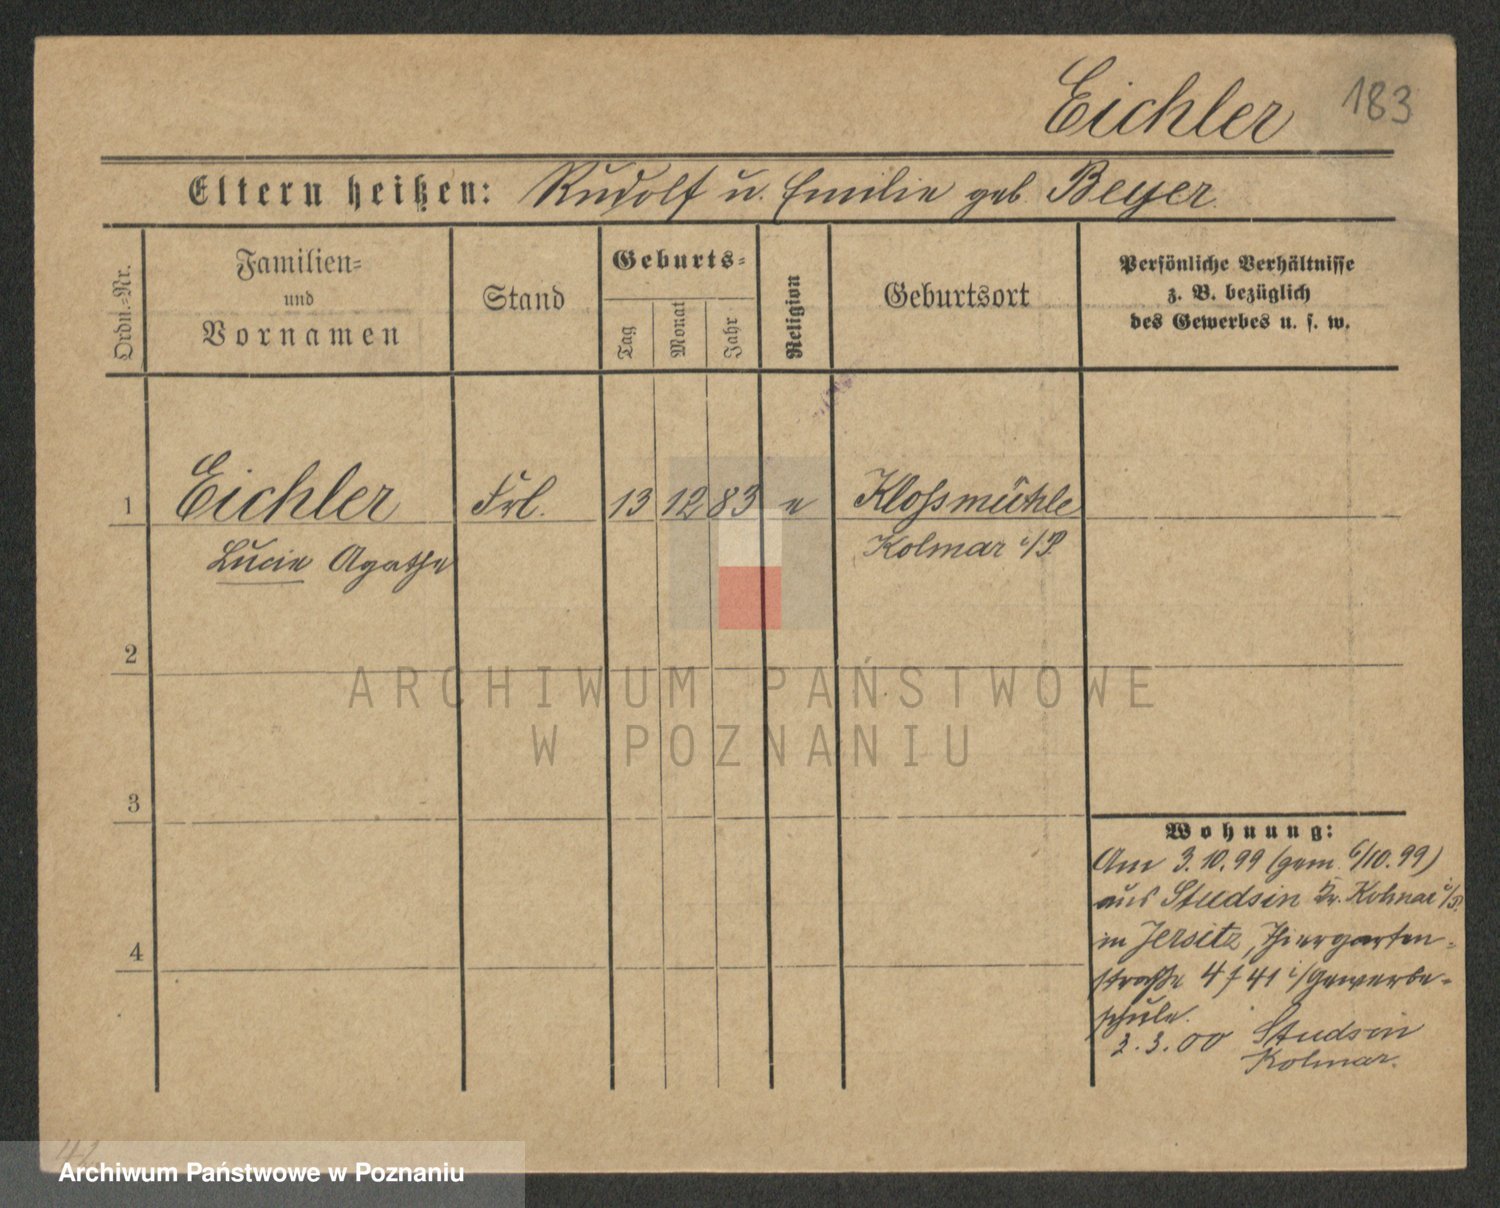 Eichler 183
Eltern heißen: Rudolf u. Emilie geb. Beyer.
Ordn.-Nr.
Familien-
und
Vornamen
Stand
Geburts-
Tag
Monat
Jahr
Religion
Geburtsort
Persönliche Verhältnisse
z. B. bezüglich
des Gewerbes u. s. w.
1 Eichler Frl. 13 12 83 e Klossmühle
Lucie Agathe Kolmar i/P.
2
ARCHIWUM PAŃSTWOWE
W POZNANIU
3
Wohnung:
Am 3.10.99 (gem. 6/10.99)
aus Studsin Kr. Kolmar i/P.
4
in Jersitz, Thiergarten-
straße 4 f 41 i/Gewerbe-
schule.
2.3.00 Studsin
Kolmar.
Archiwum Państwowe w Poznaniu